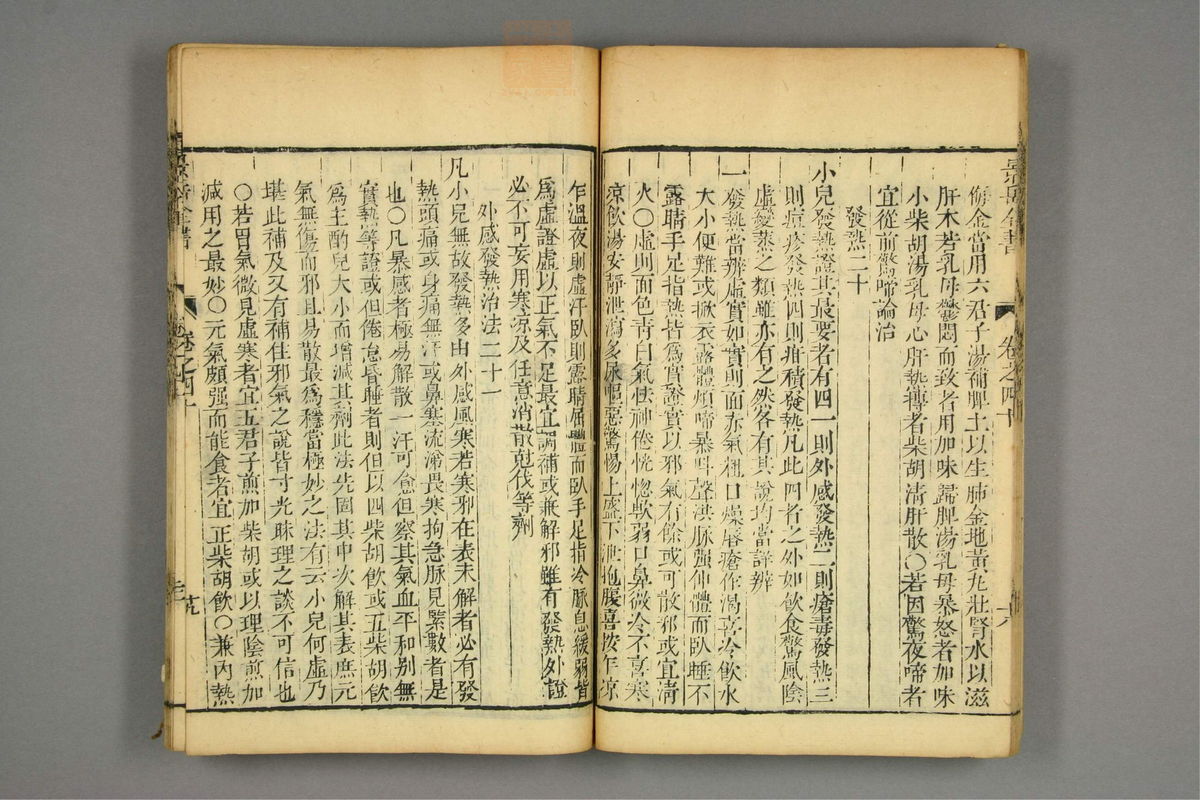 侮金當用六君子湯補脾土以生肺金地黃丸壯腎水以滋
肝木若乳母鬱悶而致者用加味歸脾湯乳母暴怒者加味
小柴胡湯乳母心肝熱摶者柴胡清肝散○若因驚夜啼者
宜從前驚啼論治
發熱二十
小兒發熱證其最要者有四一則外感發熱二則瘡毒發熱三
則痘疹發熱四則疳積發熱凡此四者之外如飲食驚風陰
虛變蒸之類雖亦有之然各有其說均當詳辨
一發熱當辨虛實如實則面赤氣粗口燥唇瘡作渴喜冷飲水
大小便難或掀衣露體煩啼暴呌聲洪脉强伸體而臥睡不
露睛手足指熱皆爲實證實以邪氣有餘或可散邪或宜清
火○虛則面色青白氣怯神倦恍惚軟弱口鼻微冷不喜寒
凉飲湯安靜泄瀉多尿嘔惡驚惕上盛下泄抱腹喜按乍凉
乍溫夜則虛汗臥則露睛屈體而臥手足指冷脈息緩弱皆
爲虛證虛以正氣不足最宜調補或兼解邪雖有發熱外證
必不可妄用寒凉及任意消散尅伐等劑
外感發熱治法二十一
凡小兒無故發熱多由外感風寒若寒邪在表未解者必有發
熱頭痛或身痛無汗或鼻塞流涕畏寒拘急脈見緊數者是
也○凡暴感者極易解散一汗可愈但察其氣血平和別無
實熱等證或但倦怠昏睡者則但以四柴胡飲或五柴胡飲
爲主酌兒大小而增減其劑此法先固其中次解其表庶元
氣無傷而邪且易散最爲穩當極妙之法有云小兒何虛乃
堪此補及又有補住邪氣之說皆寸光昧理之談不可信也
○若胃氣微見虛寒者宜五君子煎加柴胡或以理陰煎加
減用之最妙○元氣頗强而能食者宜正柴胡飲○兼內熱
景岳全書
卷之四十